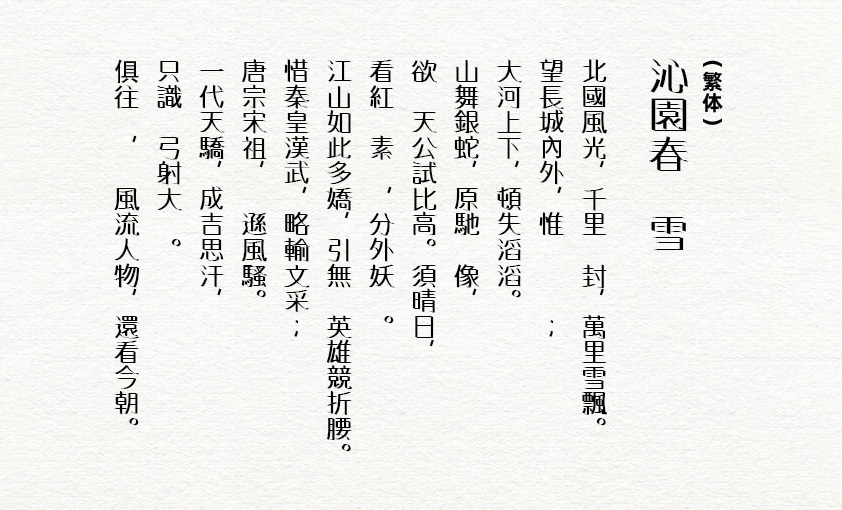 (繁体)
沁園春 雪
北國風光，千里 封，萬里雪飄。
望長城內外，惟 ；
大河上下，頓失滔滔。
山舞銀蛇，原馳 像，
欲 天公試比高。須晴日，
看紅 素 ，分外妖 。
江山如此多嬌，引無 英雄競折腰。
惜秦皇漢武，略輸文采；
唐宗宋祖， 遜風騷。
一代天驕，成吉思汗，
只識 弓射大 。
俱往 ，風流人物，還看今朝。